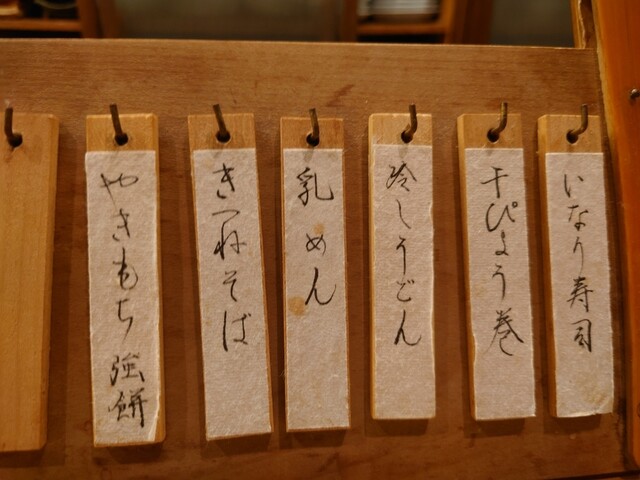 いなり寿司
干ぴょう巻
冷しうどん
乳めん
きつねそば
やきもち強餅